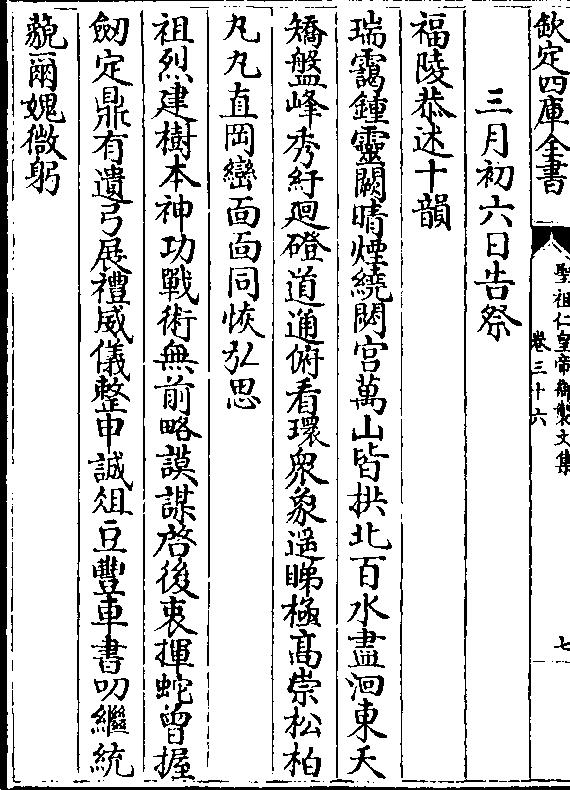 欽定四庫全書
聖祖仁皇帝御製文集
卷三十六
七
三月初六日告祭
福陵恭述十韻
瑞靄鍾靈闕晴煙繞閟宮萬山皆拱北百水盡洄東夭
矯盤峰秀紆迴磴道通俯看環衆象遥睇極高崇松柏
丸丸直岡巒面面同恢弘思
祖烈建樹本神功戰術無前略謨謀啓後衷揮蛇曾握
劒定鼎有遺弓展禮威儀整申誠俎豆豐車書叨繼統
藐爾媿微躬